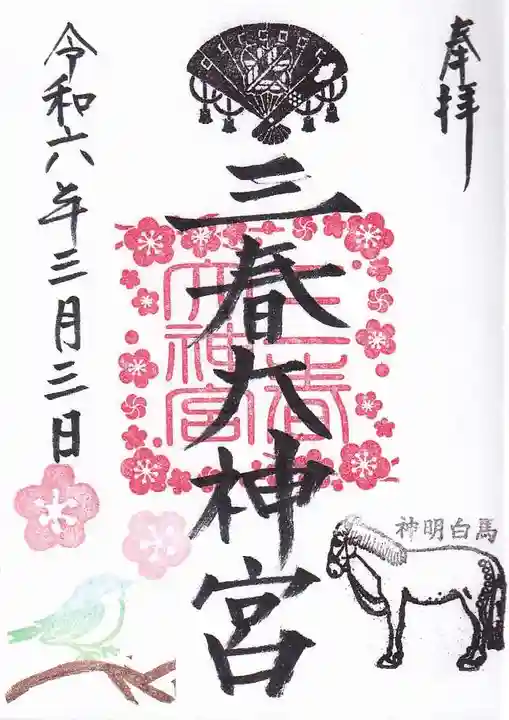 奉拝
三春大神宮
三春
大神宮
令和六年三月三日
神明白馬